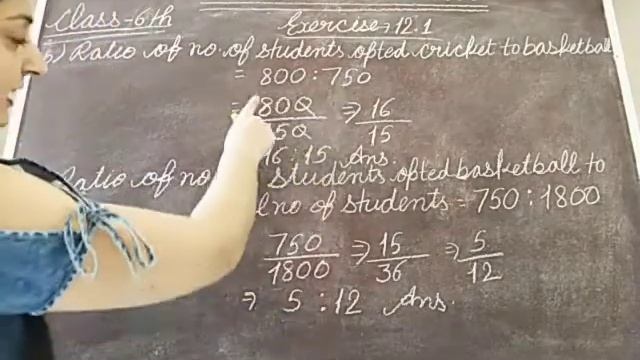 Class-6th
Exercise→12.1
b) Ratio of no. of students opted cricket to basketball
= 800 : 750
= 800/50 ⇒ 16/15
16 : 15 Ans.
Ratio of no students opted basketball to
no of students = 750 : 1800
750/1800 ⇒ 15/36 ⇒ 5/12
⇒ 5 : 12 Ans.